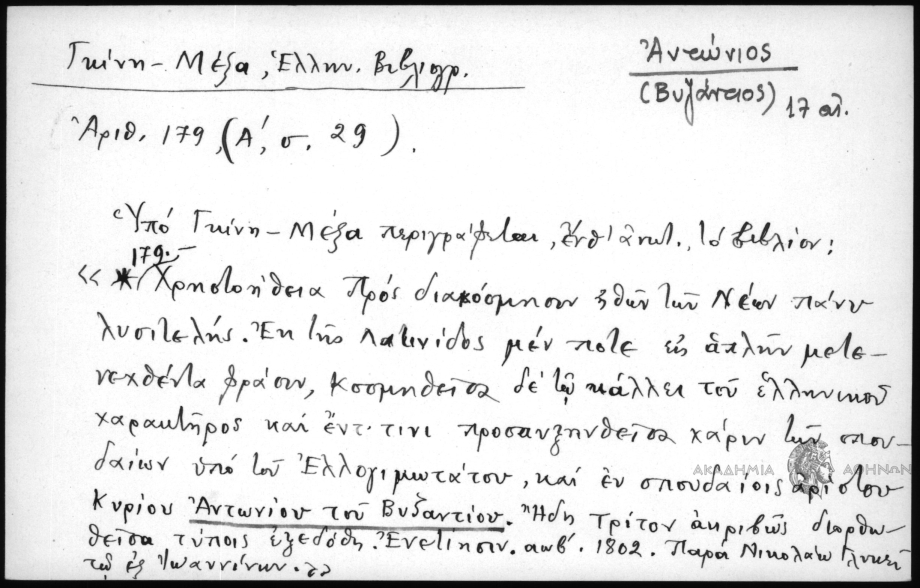 Γκίνη - Μέξα, Ἑλλην. Βιβλιογρ.
Ἀντώνιος
(Βυζάντιος) 17 αἰ.
Ἀριθ. 179, (Α΄, σ. 29).
Ὑπό Γκίνη - Μέξα περιγράφεται, ἔνθ' ἀνωτ., τό βιβλίον:
179.-
«* Χρηστοήθεια πρός διακόσμησιν ἠθῶν τῶν Νέων πάνυ
λυσιτελής. Ἐκ τῆς Λατινίδος μέν ποτε εἰς ἁπλῆν μετε-
νεχθέντα φράσιν, κοσμηθεῖσα δέ τῷ κάλλει τοῦ ἑλληνικοῦ
χαρακτῆρος καί ἔν τινι προσαυξηνθεῖσα χάριν τῶν σπου-
δαίων ὑπό τοῦ Ἐλλογιμωτάτου, καί ἐν σπουδαίοις ἀρίστου
ΑΚΑΔΗΜΙΑ ΑΘΗΝΩΝ
Κυρίου Ἀντωνίου τοῦ Βυζαντίου. Ἤδη τρίτον ἀκριβῶς διορθω-
θεῖσα τύποις ἐξεδόθη. Ἐνετίησιν. αωβ΄. 1802. Παρά Νικολάῳ Γλυκεῖ
τῷ ἐξ Ἰωαννίνων.»